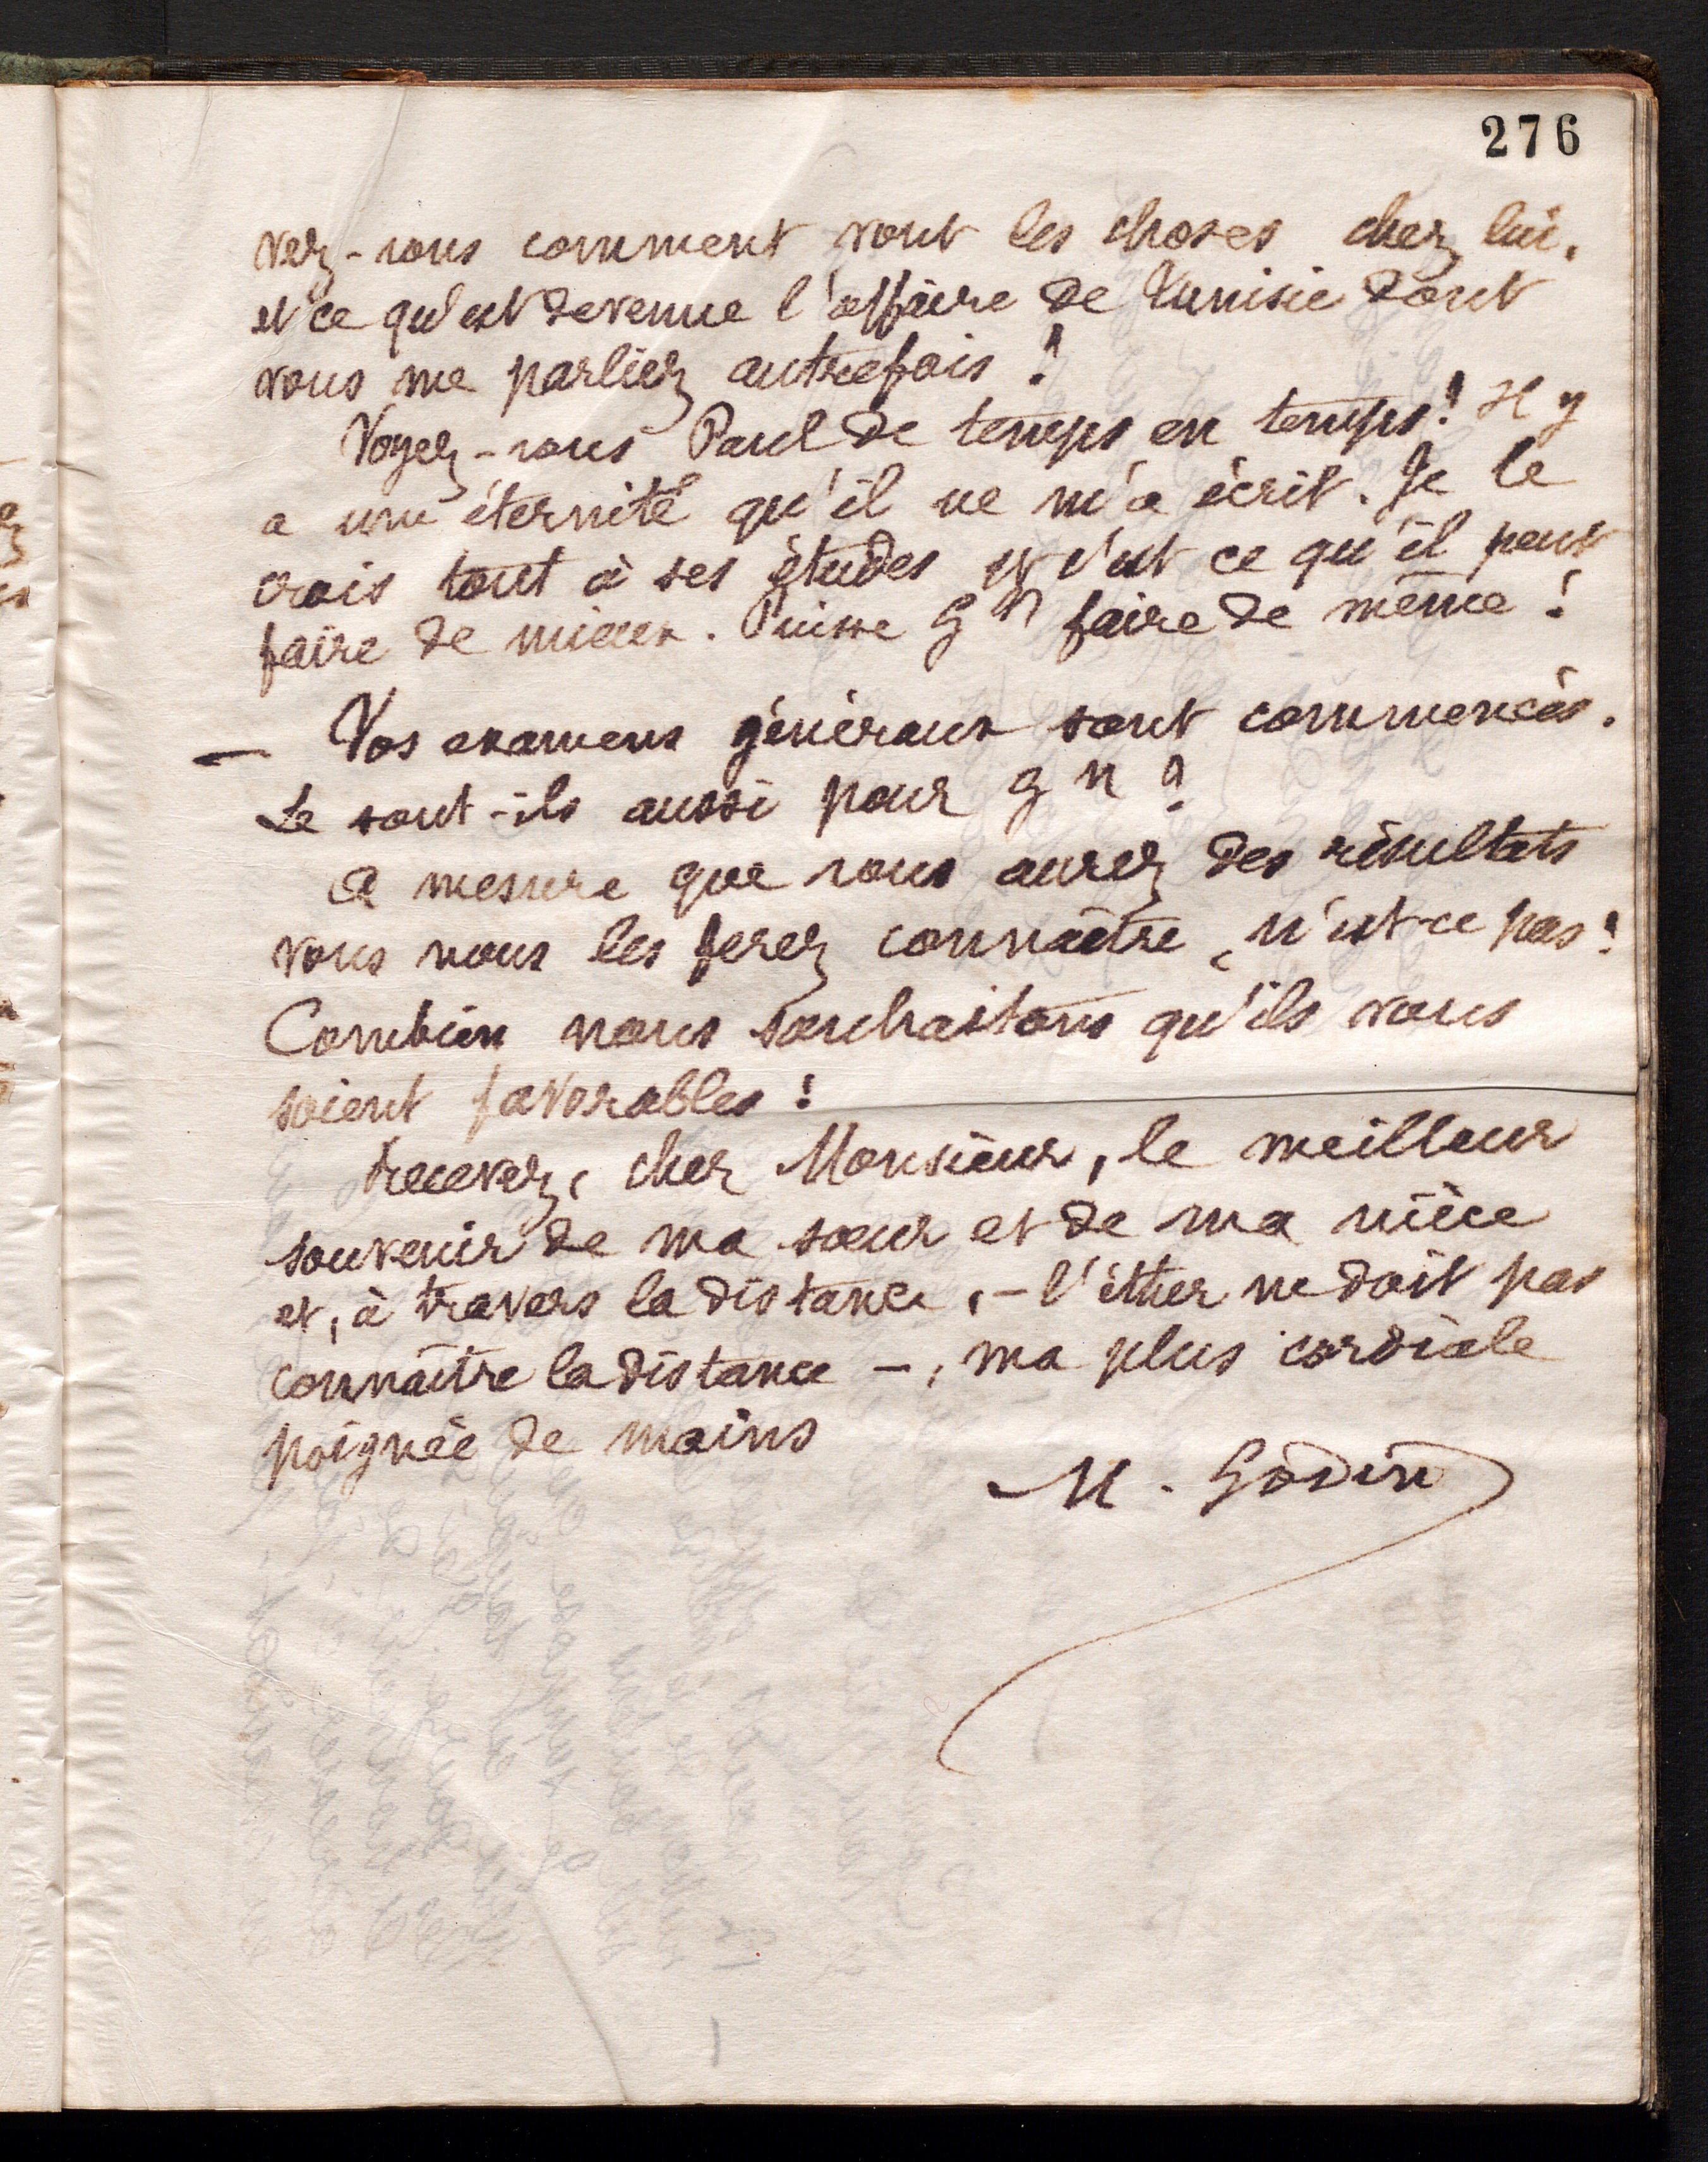 276
vez-vous comment vont les choses chez lui,
et ce qu'est devenue l'affaire de Tunisie dont
vous me parliez autrefois ?
Voyez-vous Paul de temps en temps ? Il y
a une éternité qu'il ne m'a écrit. Je le
crois tout à ses études et c'est ce qu'il peut
faire de mieux. Puisse Gn faire de même !
— Vos examens généraux sont commencés.
Le sont-ils aussi pour Gn ?
A mesure que vous aurez des résultats
vous nous les ferez connaître, n'est-ce pas ?
Combien nous souhaitons qu'ils vous
soient favorables !
Recevez, cher Monsieur, le meilleur
souvenir de ma sœur et de ma nièce
et, à travers la distance, – l'éther ne doit pas
connaître la distance –, ma plus cordiale
poignée de mains
M. Godin